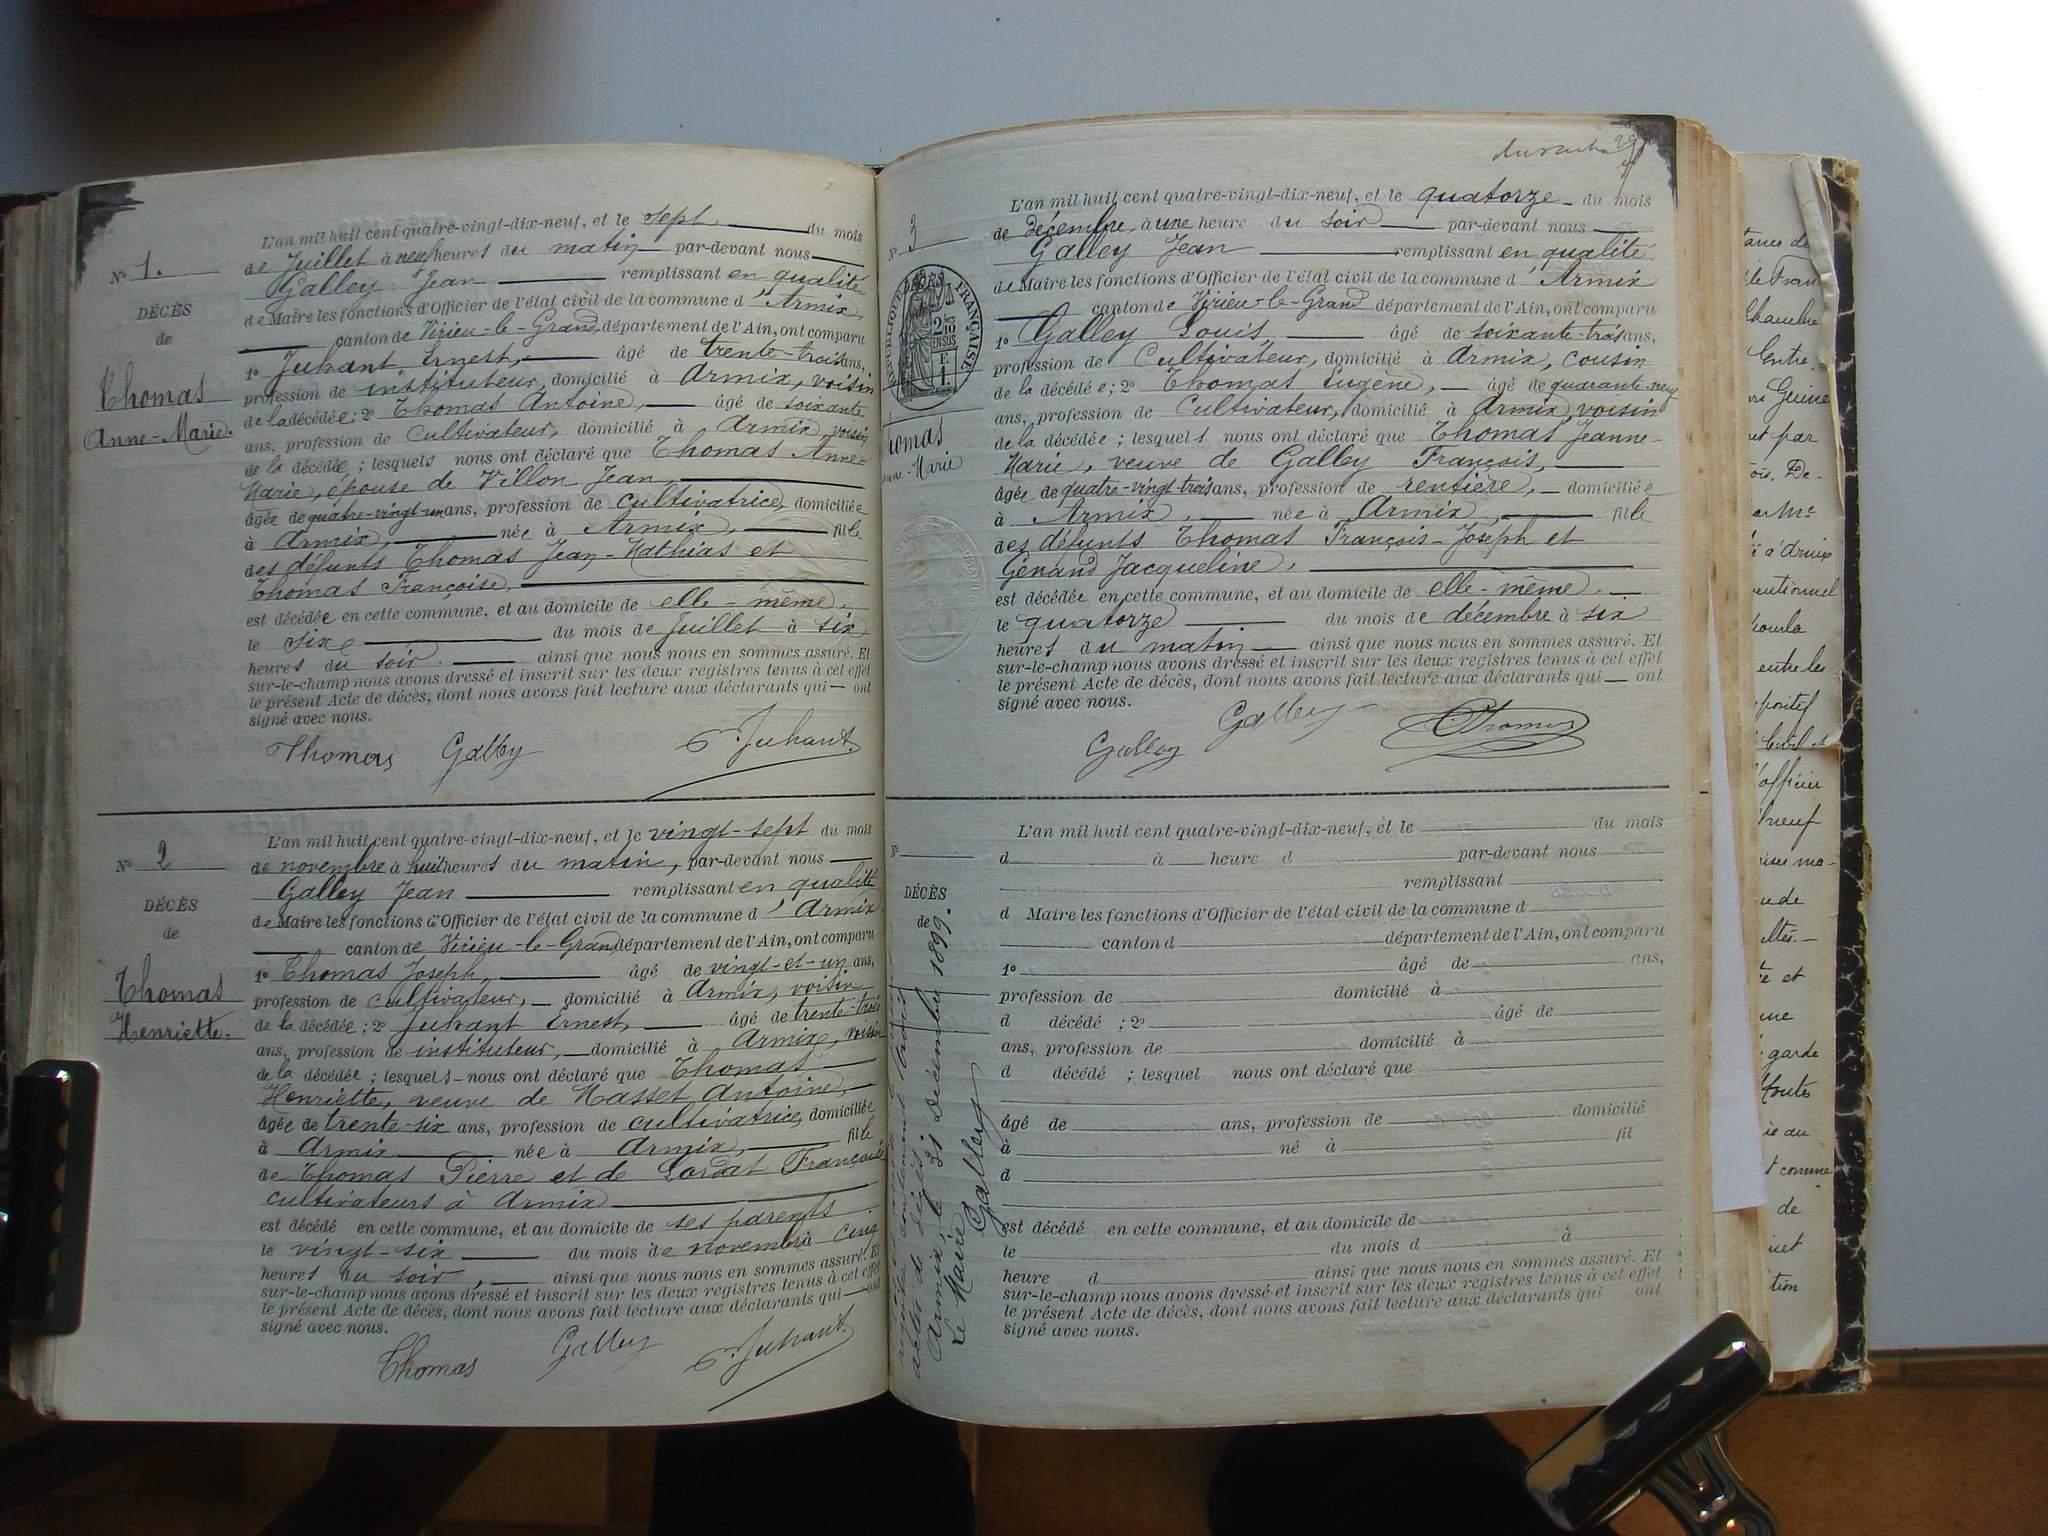 N° 1.
DÉCÈS
de
Thomas
Anne-Marie.
L'an mil huit cent quatre-vingt-dix-neuf, et le sept du mois
de Juillet à neuf heures du matin par-devant nous
Galley Jean remplissant en qualité
de Maire les fonctions d'Officier de l'état civil de la commune d'Armix,
canton de Virieu-le-Grand, département de l'Ain, ont comparu
1° Juhant Ernest, âgé de trente-trois ans,
profession de instituteur, domicilié à Armix, voisin
de la décédée; 2° Thomas Antoine, âgé de soixante
ans, profession de cultivateur, domicilié à Armix, voisin
de la décédée; lesquels nous ont déclaré que Thomas Anne-
Marie, épouse de Villon Jean,
âgée de quatre-vingt-un ans, profession de cultivatrice, domiciliée
à Armix, née à Armix, fille
des défunts Thomas Jean-Mathias et
Thomas Françoise,
est décédée en cette commune, et au domicile de elle-même,
le six du mois de Juillet à six
heures du soir. ainsi que nous nous en sommes assuré. Et
sur-le-champ nous avons dressé et inscrit sur les deux registres tenus à cet effet
le présent Acte de décès, dont nous avons fait lecture aux déclarants qui ont
signé avec nous.
Thomas Galley E. Juhant
N° 2
DÉCÈS
de
Thomas
Henriette.
L'an mil huit cent quatre-vingt-dix-neuf, et le vingt-sept du mois
de novembre à huit heures du matin, par-devant nous
Galley Jean remplissant en qualité
de Maire les fonctions d'Officier de l'état civil de la commune d'Armix
canton de Virieu-le-Grand, département de l'Ain, ont comparu
1° Thomas Joseph, âgé de vingt-et-un ans,
profession de cultivateur, domicilié à Armix, voisin
de la décédée; 2° Juhant Ernest, âgé de trente-trois
ans, profession de instituteur, domicilié à Armix, voisin
de la décédée; lesquels nous ont déclaré que Thomas
Henriette, veuve de Masset Antoine,
âgée de trente-six ans, profession de cultivatrice, domiciliée
à Armix née à Armix, fille
de Thomas Pierre et de Lordat Françoise
cultivateurs à Armix
est décédé en cette commune, et au domicile de ses parents
le vingt-six du mois de novembre à cinq
heures du soir, ainsi que nous nous en sommes assuré. Et
sur-le-champ nous avons dressé et inscrit sur les deux registres tenus à cet effet
le présent Acte de décès, dont nous avons fait lecture aux déclarants qui ont
signé avec nous.
Thomas Galley E. Juhant
N° 3
DÉCÈS
de
RÉPUBLIQUE FRANÇAISE
2/10 EN SUS
F. 1.
homas
nne-Marie
L'an mil huit cent quatre-vingt-dix-neuf, et le quatorze du mois
de décembre, à une heure du soir par-devant nous
Galley Jean remplissant en qualité
de Maire les fonctions d'Officier de l'état civil de la commune d'Armix
canton de Virieu-le-Grand département de l'Ain, ont comparu
1° Galley Louis, âgé de soixante-trois ans,
profession de cultivateur, domicilié à Armix, cousin
de la décédée; 2° Thomas Eugène, âgé de quarante-neuf
ans, profession de cultivateur, domicilié à Armix, voisin
de la décédée; lesquels nous ont déclaré que Thomas Jeanne-
Marie, veuve de Galley François,
âgée de quatre-vingt trois ans, profession de rentière, domiciliée
à Armix, née à Armix, fille
des défunts Thomas François-Joseph et
Genand Jacqueline,
est décédée en cette commune, et au domicile de elle-même
le quatorze du mois de décembre à six
heures du matin ainsi que nous nous en sommes assuré. Et
sur-le-champ nous avons dressé et inscrit sur les deux registres tenus à cet effet
le présent Acte de décès, dont nous avons fait lecture aux déclarants qui ont
signé avec nous.
Galley Galley Thomas
N°
DÉCÈS
de
actes de décès.
Armix, le 31 Décembre 1899.
Le Maire
Galley
L'an mil huit cent quatre-vingt-dix-neuf, et le du mois
d à heure d par-devant nous
remplissant
d Maire les fonctions d'Officier de l'état civil de la commune d
canton d département de l'Ain, ont comparu
1° âgé de ans,
profession de domicilié à
d décédé ; 2° âgé de
ans, profession de domicilié à
d décédé ; lesquel nous ont déclaré que
âgé de ans, profession de domicilié
à né à fil
d
est décédé en cette commune, et au domicile de
le du mois d à
heure d ainsi que nous nous en sommes assuré. Et
sur-le-champ nous avons dressé et inscrit sur les deux registres tenus à cet effet
le présent Acte de décès, dont nous avons fait lecture aux déclarants qui ont
signé avec nous.